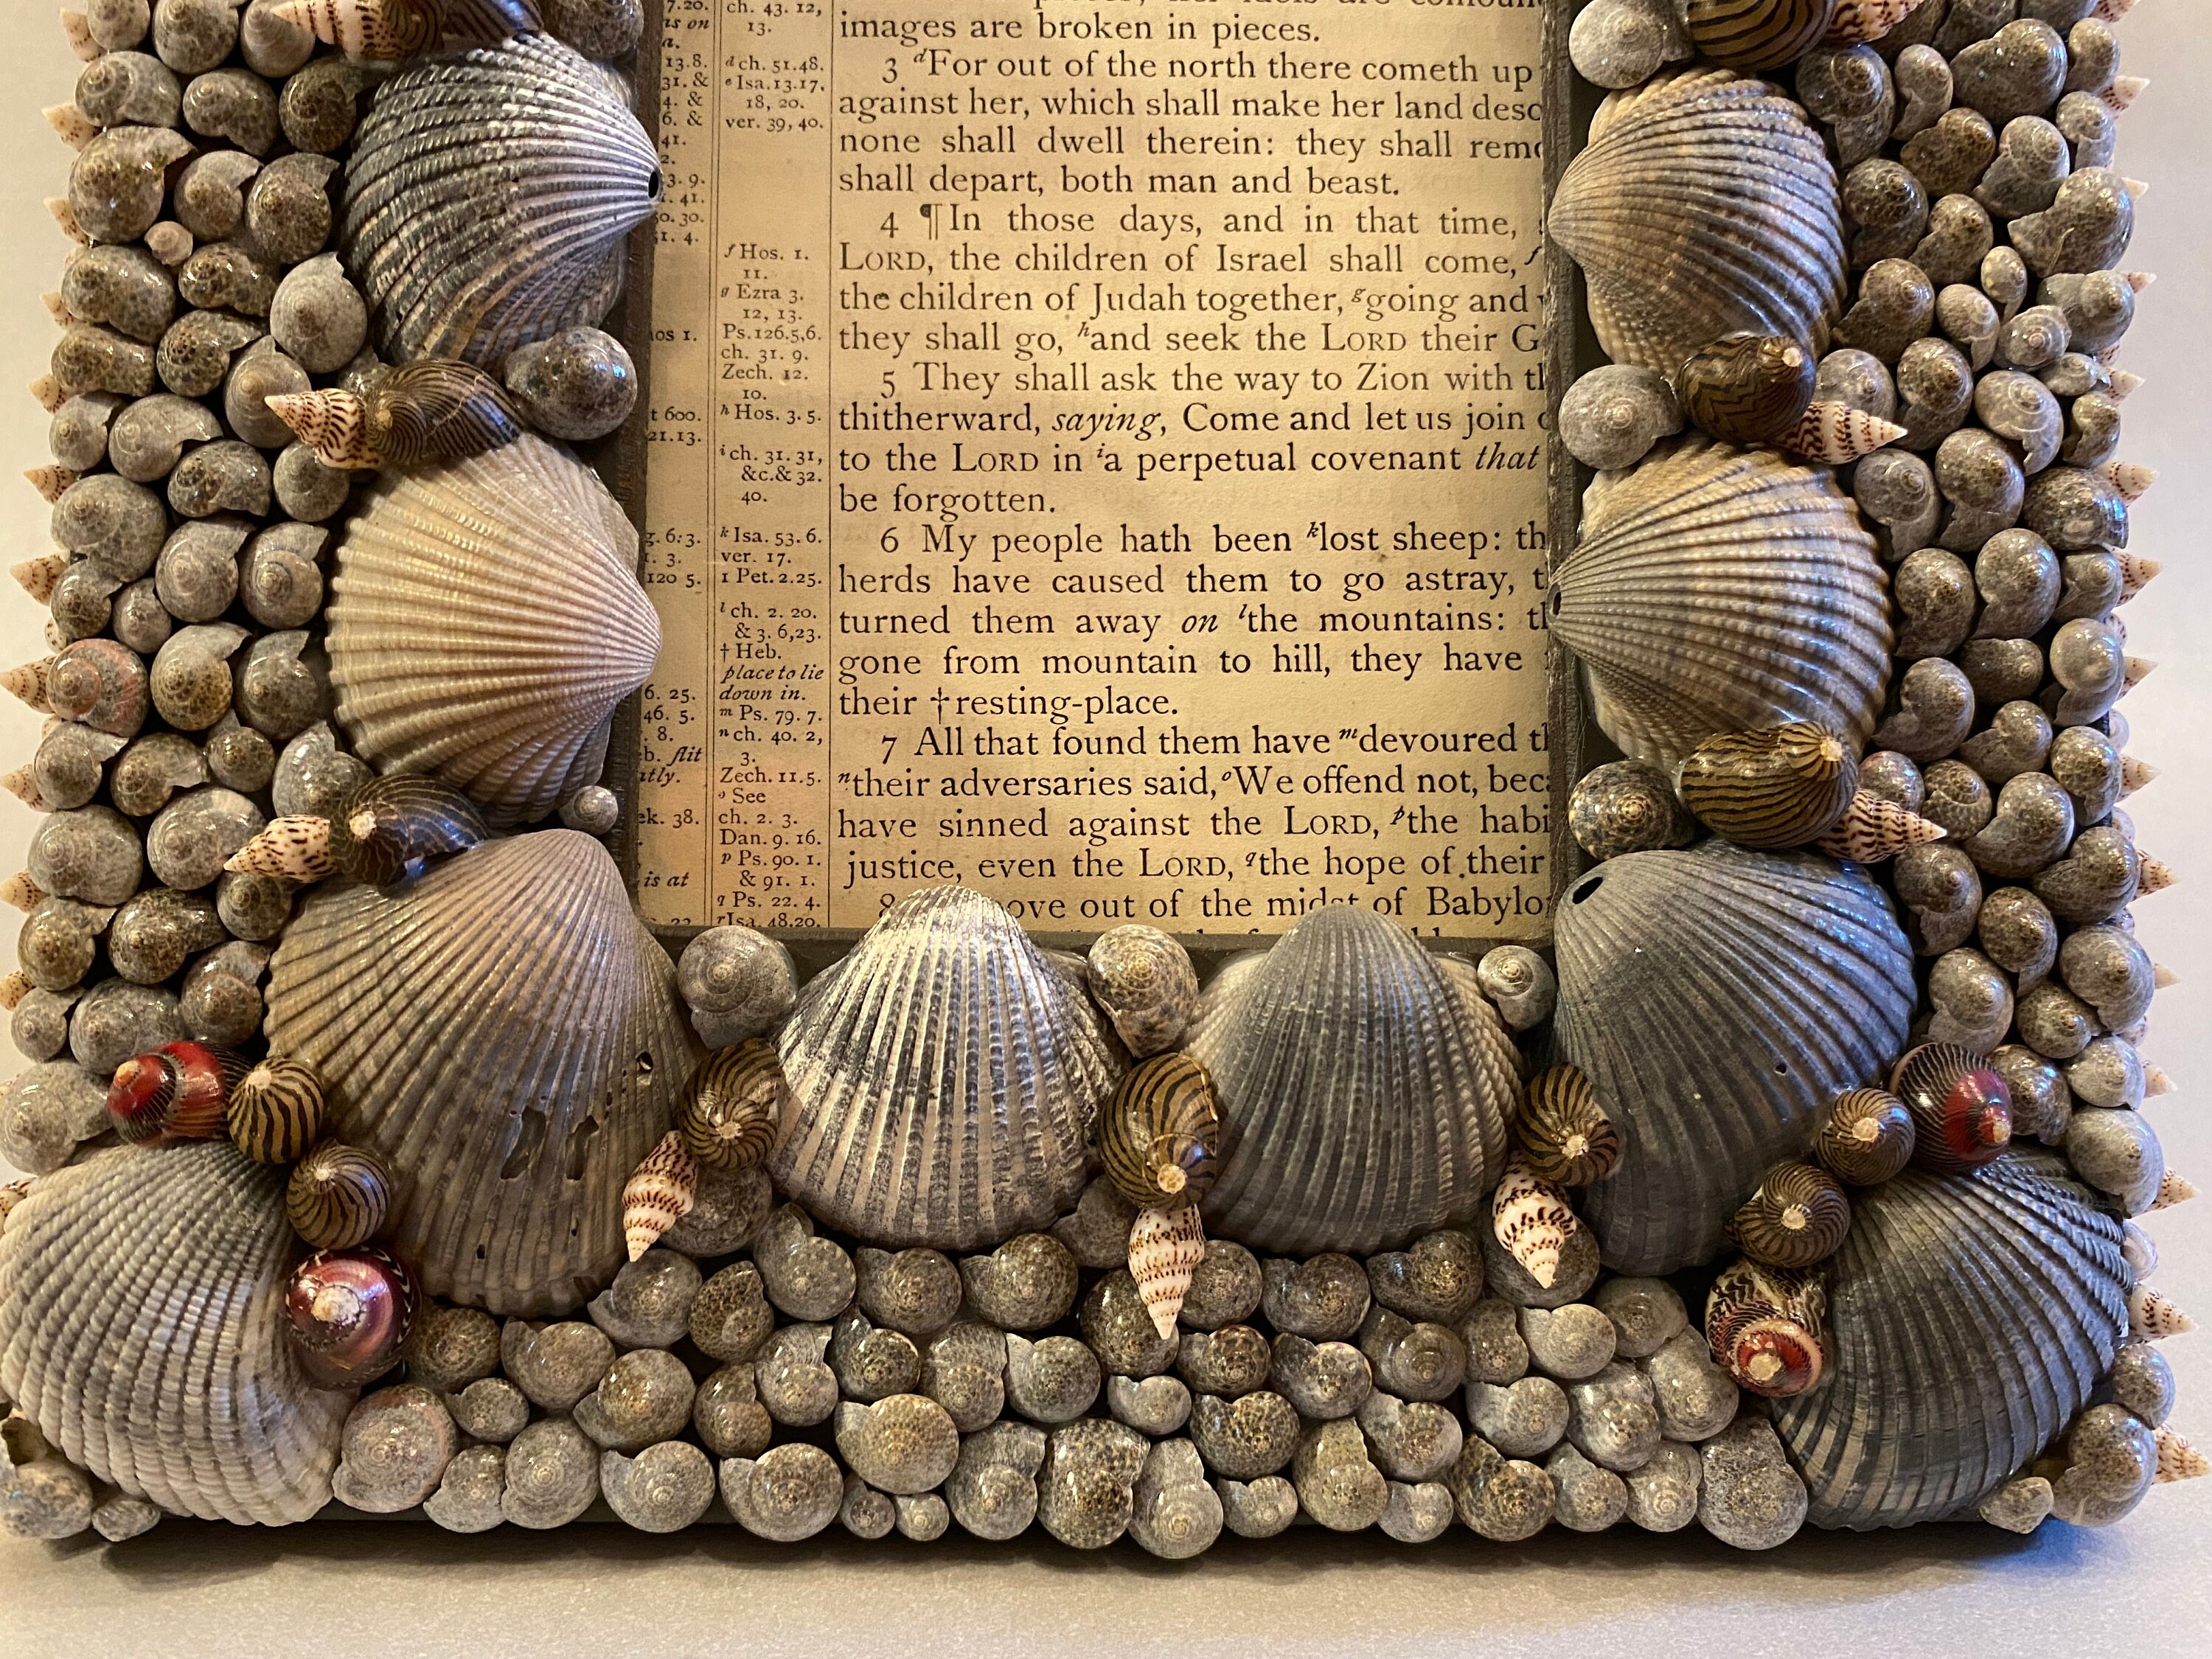 7.20.
is on
a.
13.8.
31. &
4. &
6. &
41.
2.
3. 9.
1. 41.
30.
51. 4.
1.
t 600.
21.13.
6:3.
3.
120 5.
6. 25.
46. 5.
8.
flit
38.
is at
ch. 43. 12,
13.
d ch. 51.48.
e Isa.13.17,
18, 20.
ver. 39, 40.
f Hos. 1.
11.
g Ezra 3.
12, 13.
Ps.126.5,6.
ch. 31. 9.
Zech. 12.
10.
h Hos. 3. 5.
i ch. 31. 31,
&c.& 32.
40.
k Isa. 53. 6.
ver. 17.
1 Pet. 2.25.
l ch. 2. 20.
& 3. 6,23.
† Heb.
place to lie
down in.
m Ps. 79. 7.
n ch. 40. 2,
3.
Zech. 11.5.
o See
ch. 2. 3.
Dan. 9. 16.
p Ps. 90. 1.
& 91. 1.
q Ps. 22. 4.
r Isa. 48.20.
images are broken in pieces.
3 d For out of the north there cometh up
against her, which shall make her land deso
none shall dwell therein: they shall remo
shall depart, both man and beast.
4 ¶ In those days, and in that time,
LORD, the children of Israel shall come, f
the children of Judah together, g going and
they shall go, h and seek the LORD their G
5 They shall ask the way to Zion with th
thitherward, saying, Come and let us join o
to the LORD in i a perpetual covenant that
be forgotten.
6 My people hath been k lost sheep: th
herds have caused them to go astray, t
turned them away on l the mountains: th
gone from mountain to hill, they have
their † resting-place.
7 All that found them have m devoured th
n their adversaries said, o We offend not, beca
have sinned against the LORD, p the habi
justice, even the LORD, q the hope of their
8 ove out of the midst of Babylo